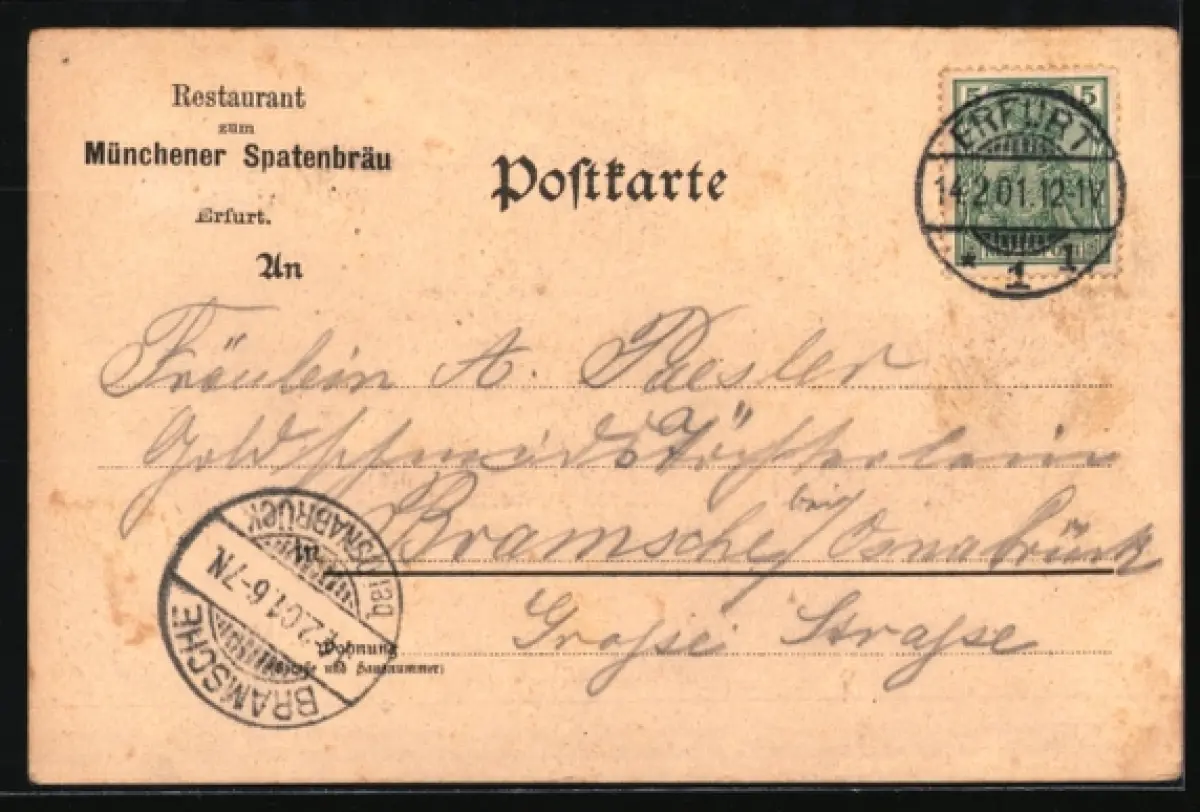 Restaurant
zum
Münchener Spatenbräu
Erfurt.
An
Postkarte
5 5
ERFURT
14.2.01.12-1V.
* 1 1
Fräulein A. Paesler
Goldschmidstöchterlein
Bramsche bei Osnabrück
in
Große Straße
Wohnung
(Straße und Hausnummer)
BRAMSCHE
2.01.6-7N.
OSNABRÜCK